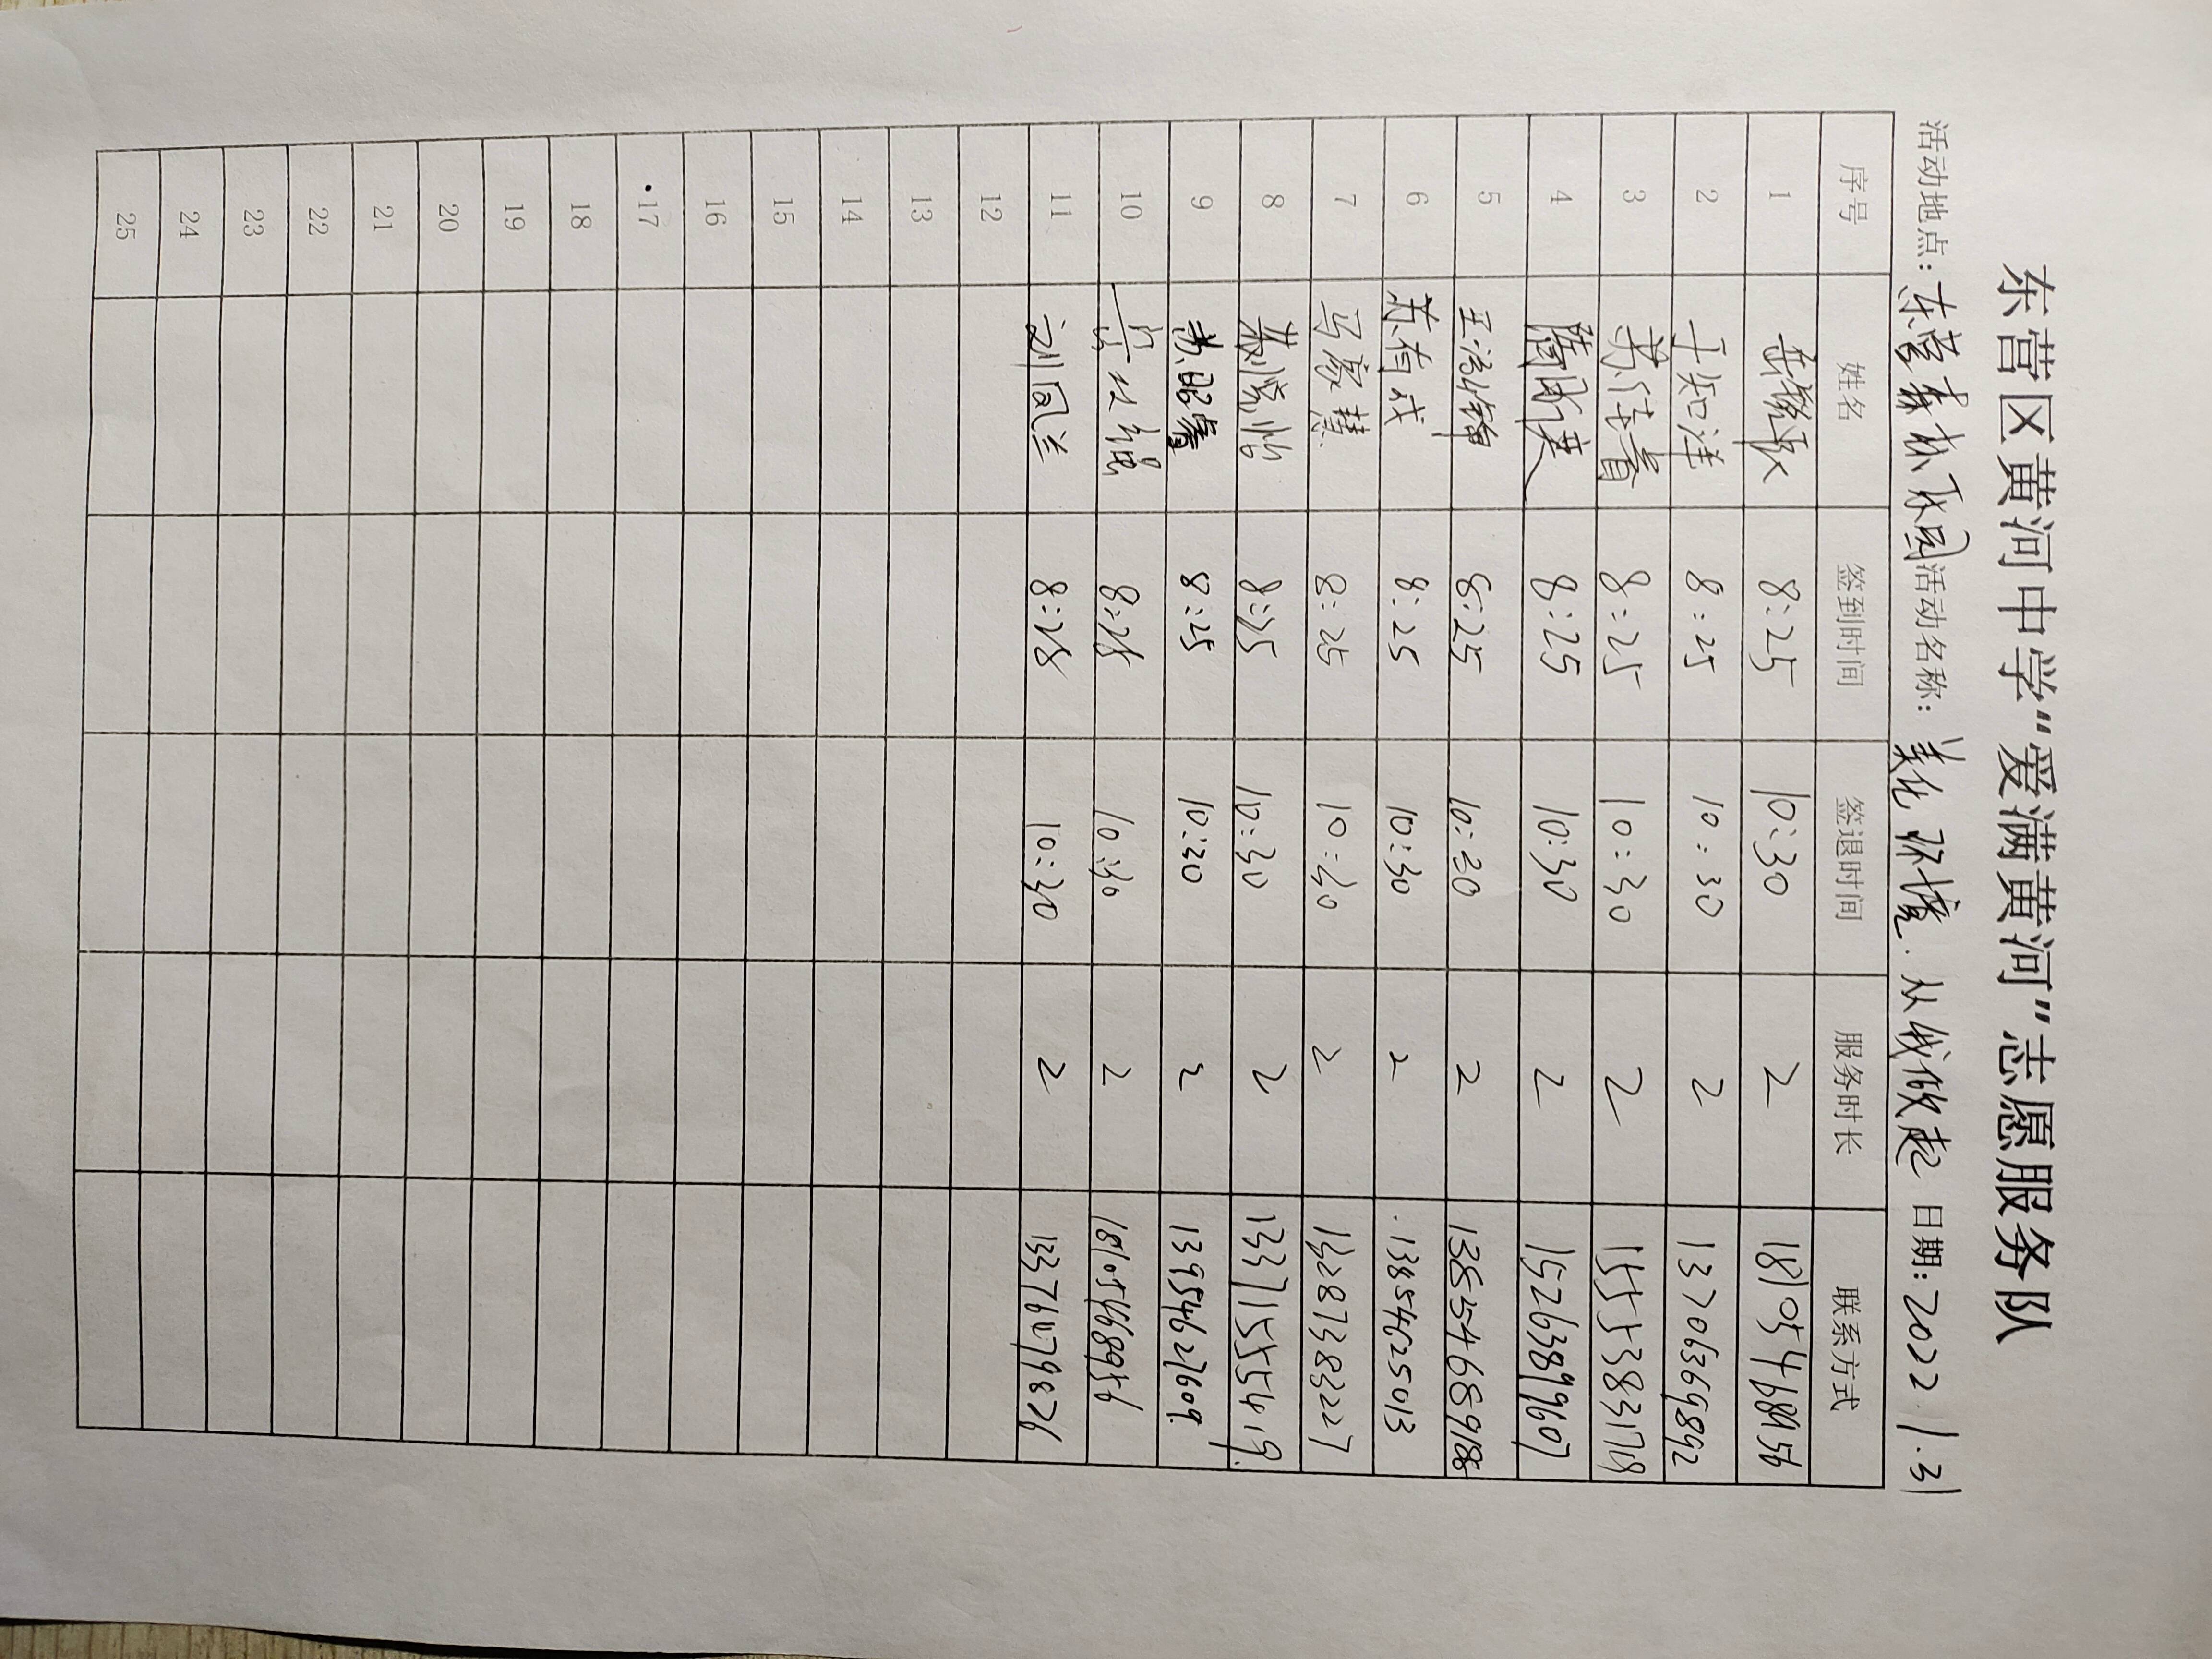 东营区黄河中学"爱满黄河"志愿服务队
活动地点: 东营森林乐园 活动名称: 美化环境.从我做起 日期: 2022.1.31
序号 姓名 签到时间 签退时间 服务时长 联系方式
1 8:25 10:30 2 18105468956
2 8:25 10:30 2 13706369892
3 8:25 10:30 2 15553831718
4 8:25 10:30 2 15263899607
5 王浩锦 8:25 10:30 2 13854689188
6 苏有成 8:25 10:30 2 13854625013
7 马家慧 8:25 10:30 2 13287383227
8 悦怡 8:25 10:30 2 13371555419
9 8:25 10:30 2 13954627609
10 8:28 10:30 2 18105468956
11 刘凤兰 8:28 10:30 2 13376479876
12
13
14
15
16
17
18
19
20
21
22
23
24
25